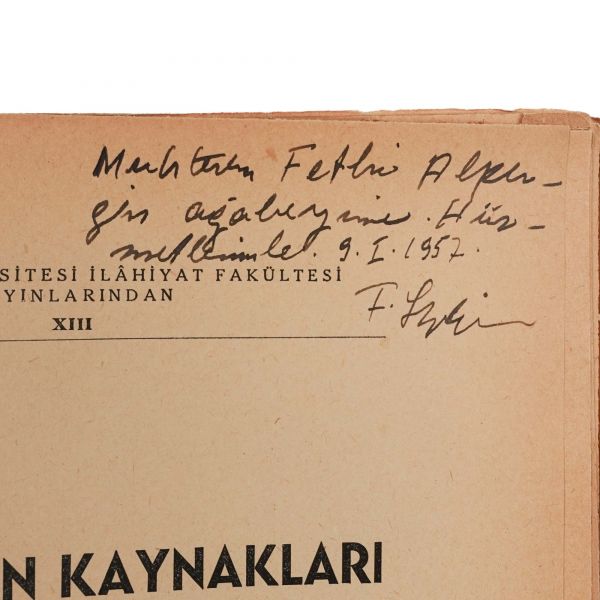 Muhterem Fethi Alper-
gin ağabeyime. Hür-
metlerimle. 9. I. 1957.
SİTESİ İLÂHİYAT FAKÜLTESİ
YINLARINDAN
XIII
F. Sezgin
N KAYNAKLARI